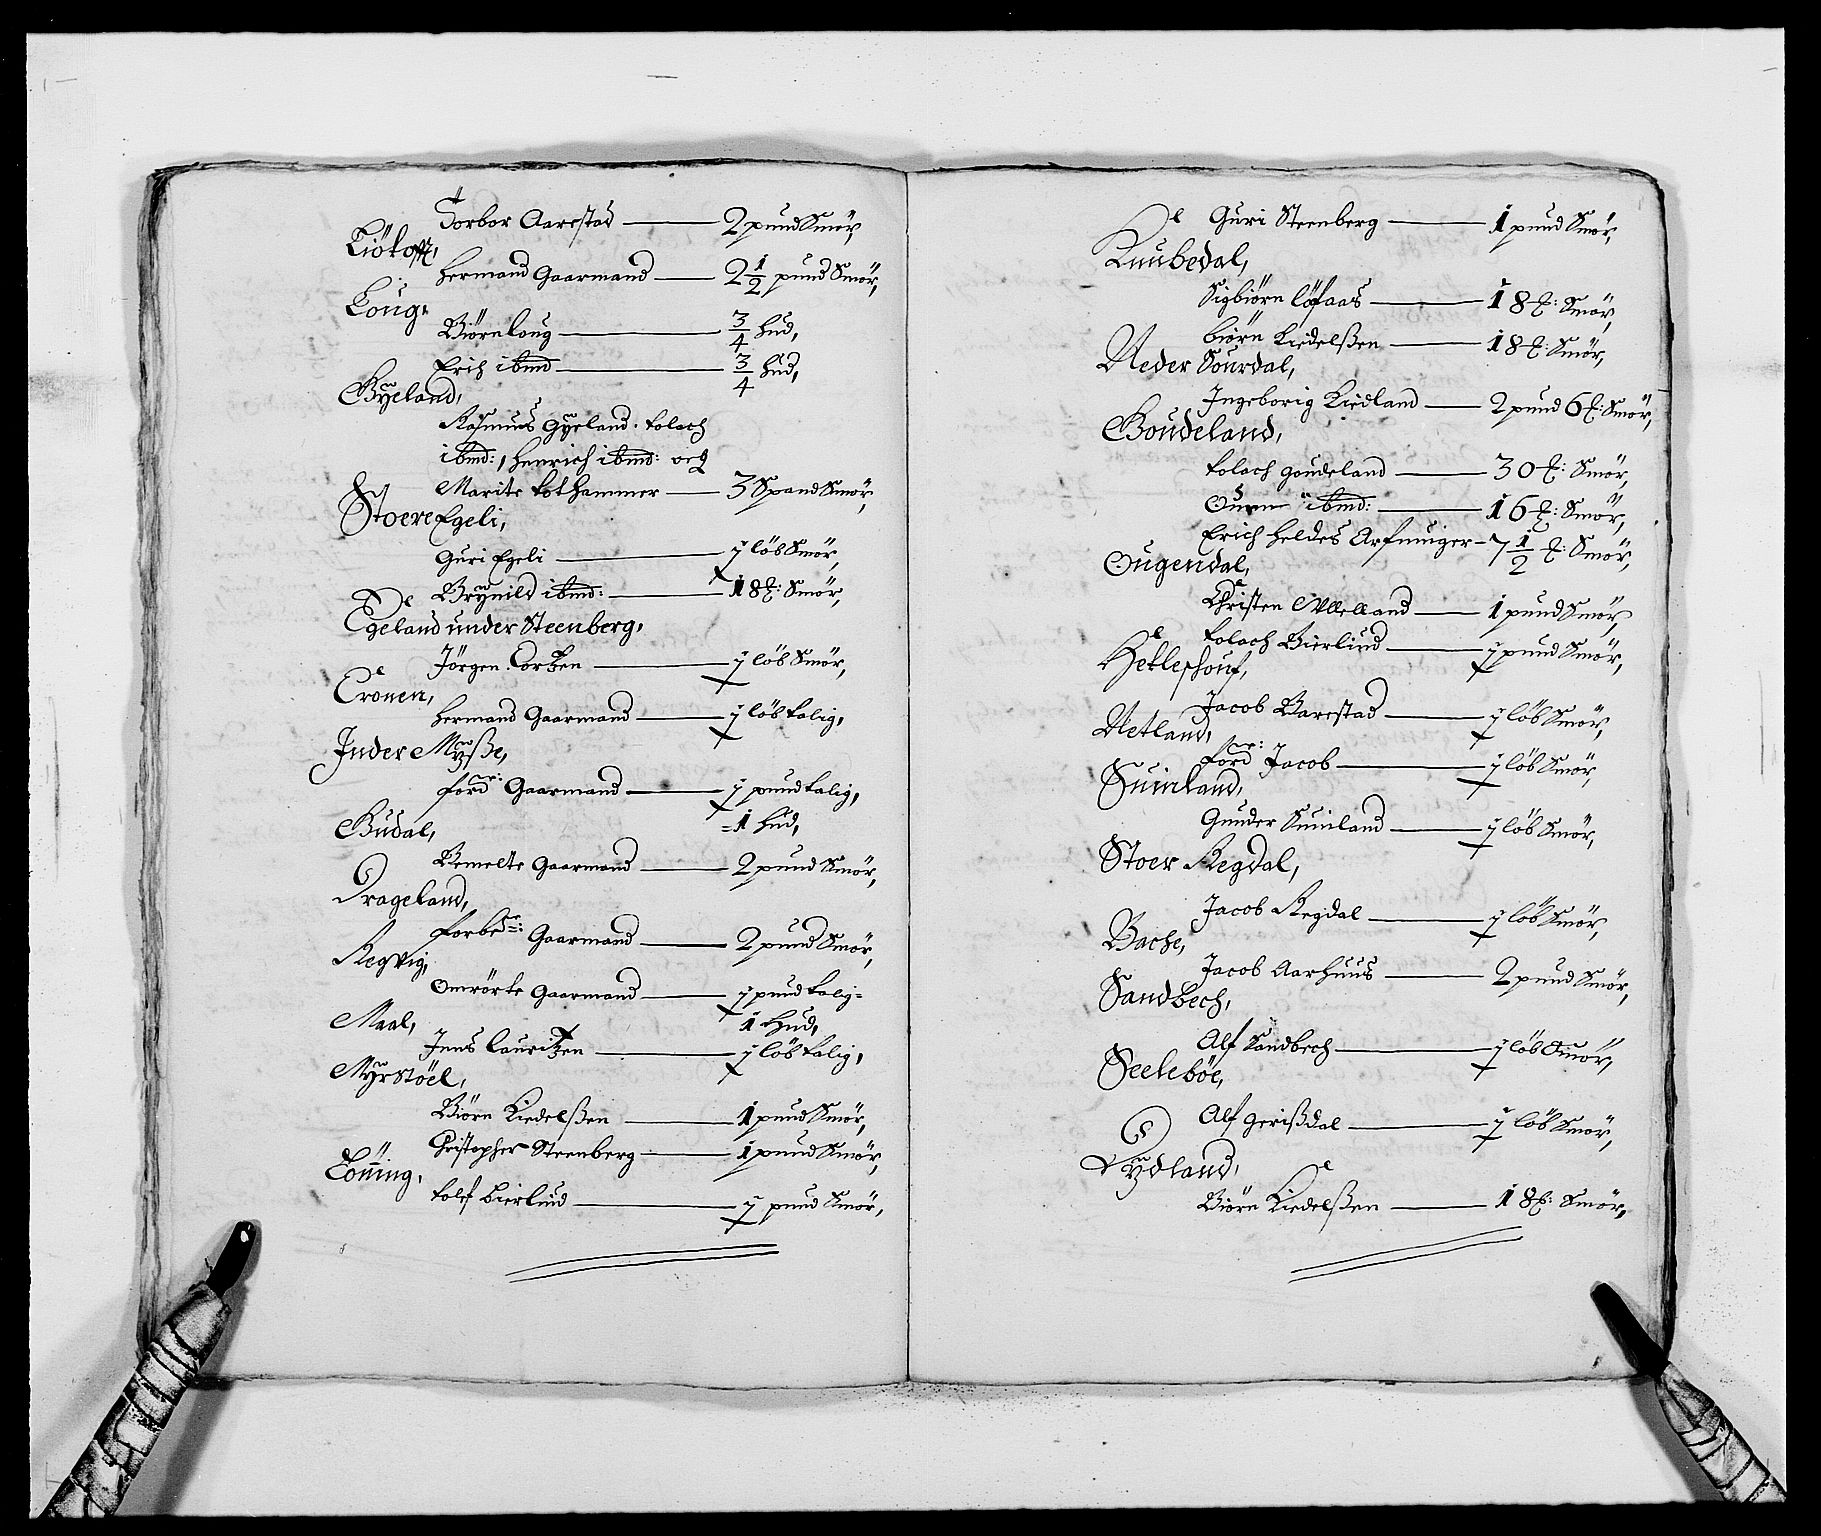 Torbor Aarstad — 2 pund Smör,
Hermand Gaarmand — 2 1/2 pund Smör,
Loug,
Biörn loug — 3/4 hud,
Erich ibmd — 3/4 hud,
Gÿeland,
Rasmus Gÿeland. tolach
ibmd:, Henrich ibmd: och
Marite tothammer — 3 Spand Smör,
Stoere Egeli,
Guri Egeli — j löb Smör,
Brÿnild ibmd: — 18 ℔: Smör,
Egeland under Steenberg,
Jörgen Lortzen — j löb Smör,
Tronen,
Hermand Gaarmand — j löb talig,
Inder Mÿsße,
ford:er Gaarmand — j pund talig,
= 1 hud,
Gudal,
Bemelte Gaarmand — 2 pund Smör,
Drageland,
forbe:te Gaarmand — 2 pund Smör,
Regevig,
Omrörte Gaarmand — j pund talig =
1 Hud,
Maal,
Jens lauritzen — j löb talig,
Mÿrstöel,
Biörn Kiedelßen — 1 pund Smör,
Christopher Steenberg — 1 pund Smör,
Tönning,
tolf Bierlind — j pund Smör,
Guri Steenberg — 1 pund Smör,
Knubedal,
Sigbiörn löfaas — 18 ℔: Smör,
biörn Kiedelßen — 18 ℔: Smör,
Neder Sourdal,
Ingeborig Kiedland — 2 pund 6 ℔: Smör,
Goudeland,
tolach goudeland — 30 ℔: Smör,
Oven ibmd: — 16 ℔: Smör,
Erich heldes Arfuinger — 7 1/2 ℔: Smör,
Ougendal,
Christen Aaelland — 1 pund Smör,
tolach Bierlind — j pund Smör,
Hetleshouf,
Jacob Barstad — j löb Smör,
Netland,
ford:er Jacob — j löb Smör,
Suinland,
Gunder Suinland — j löb Smör,
Stoer Regdal,
Jacob Regdal — j löb Smör,
Bache,
Jacob Aarhuus — 2 pund Smör,
Sandbech,
Alf Sandbech — j löb Smör,
Seeleböe,
Alf gerißdal — j löb Smör,
Lÿdland,
Biörn Kiedelßen — 18 ℔: Smör,